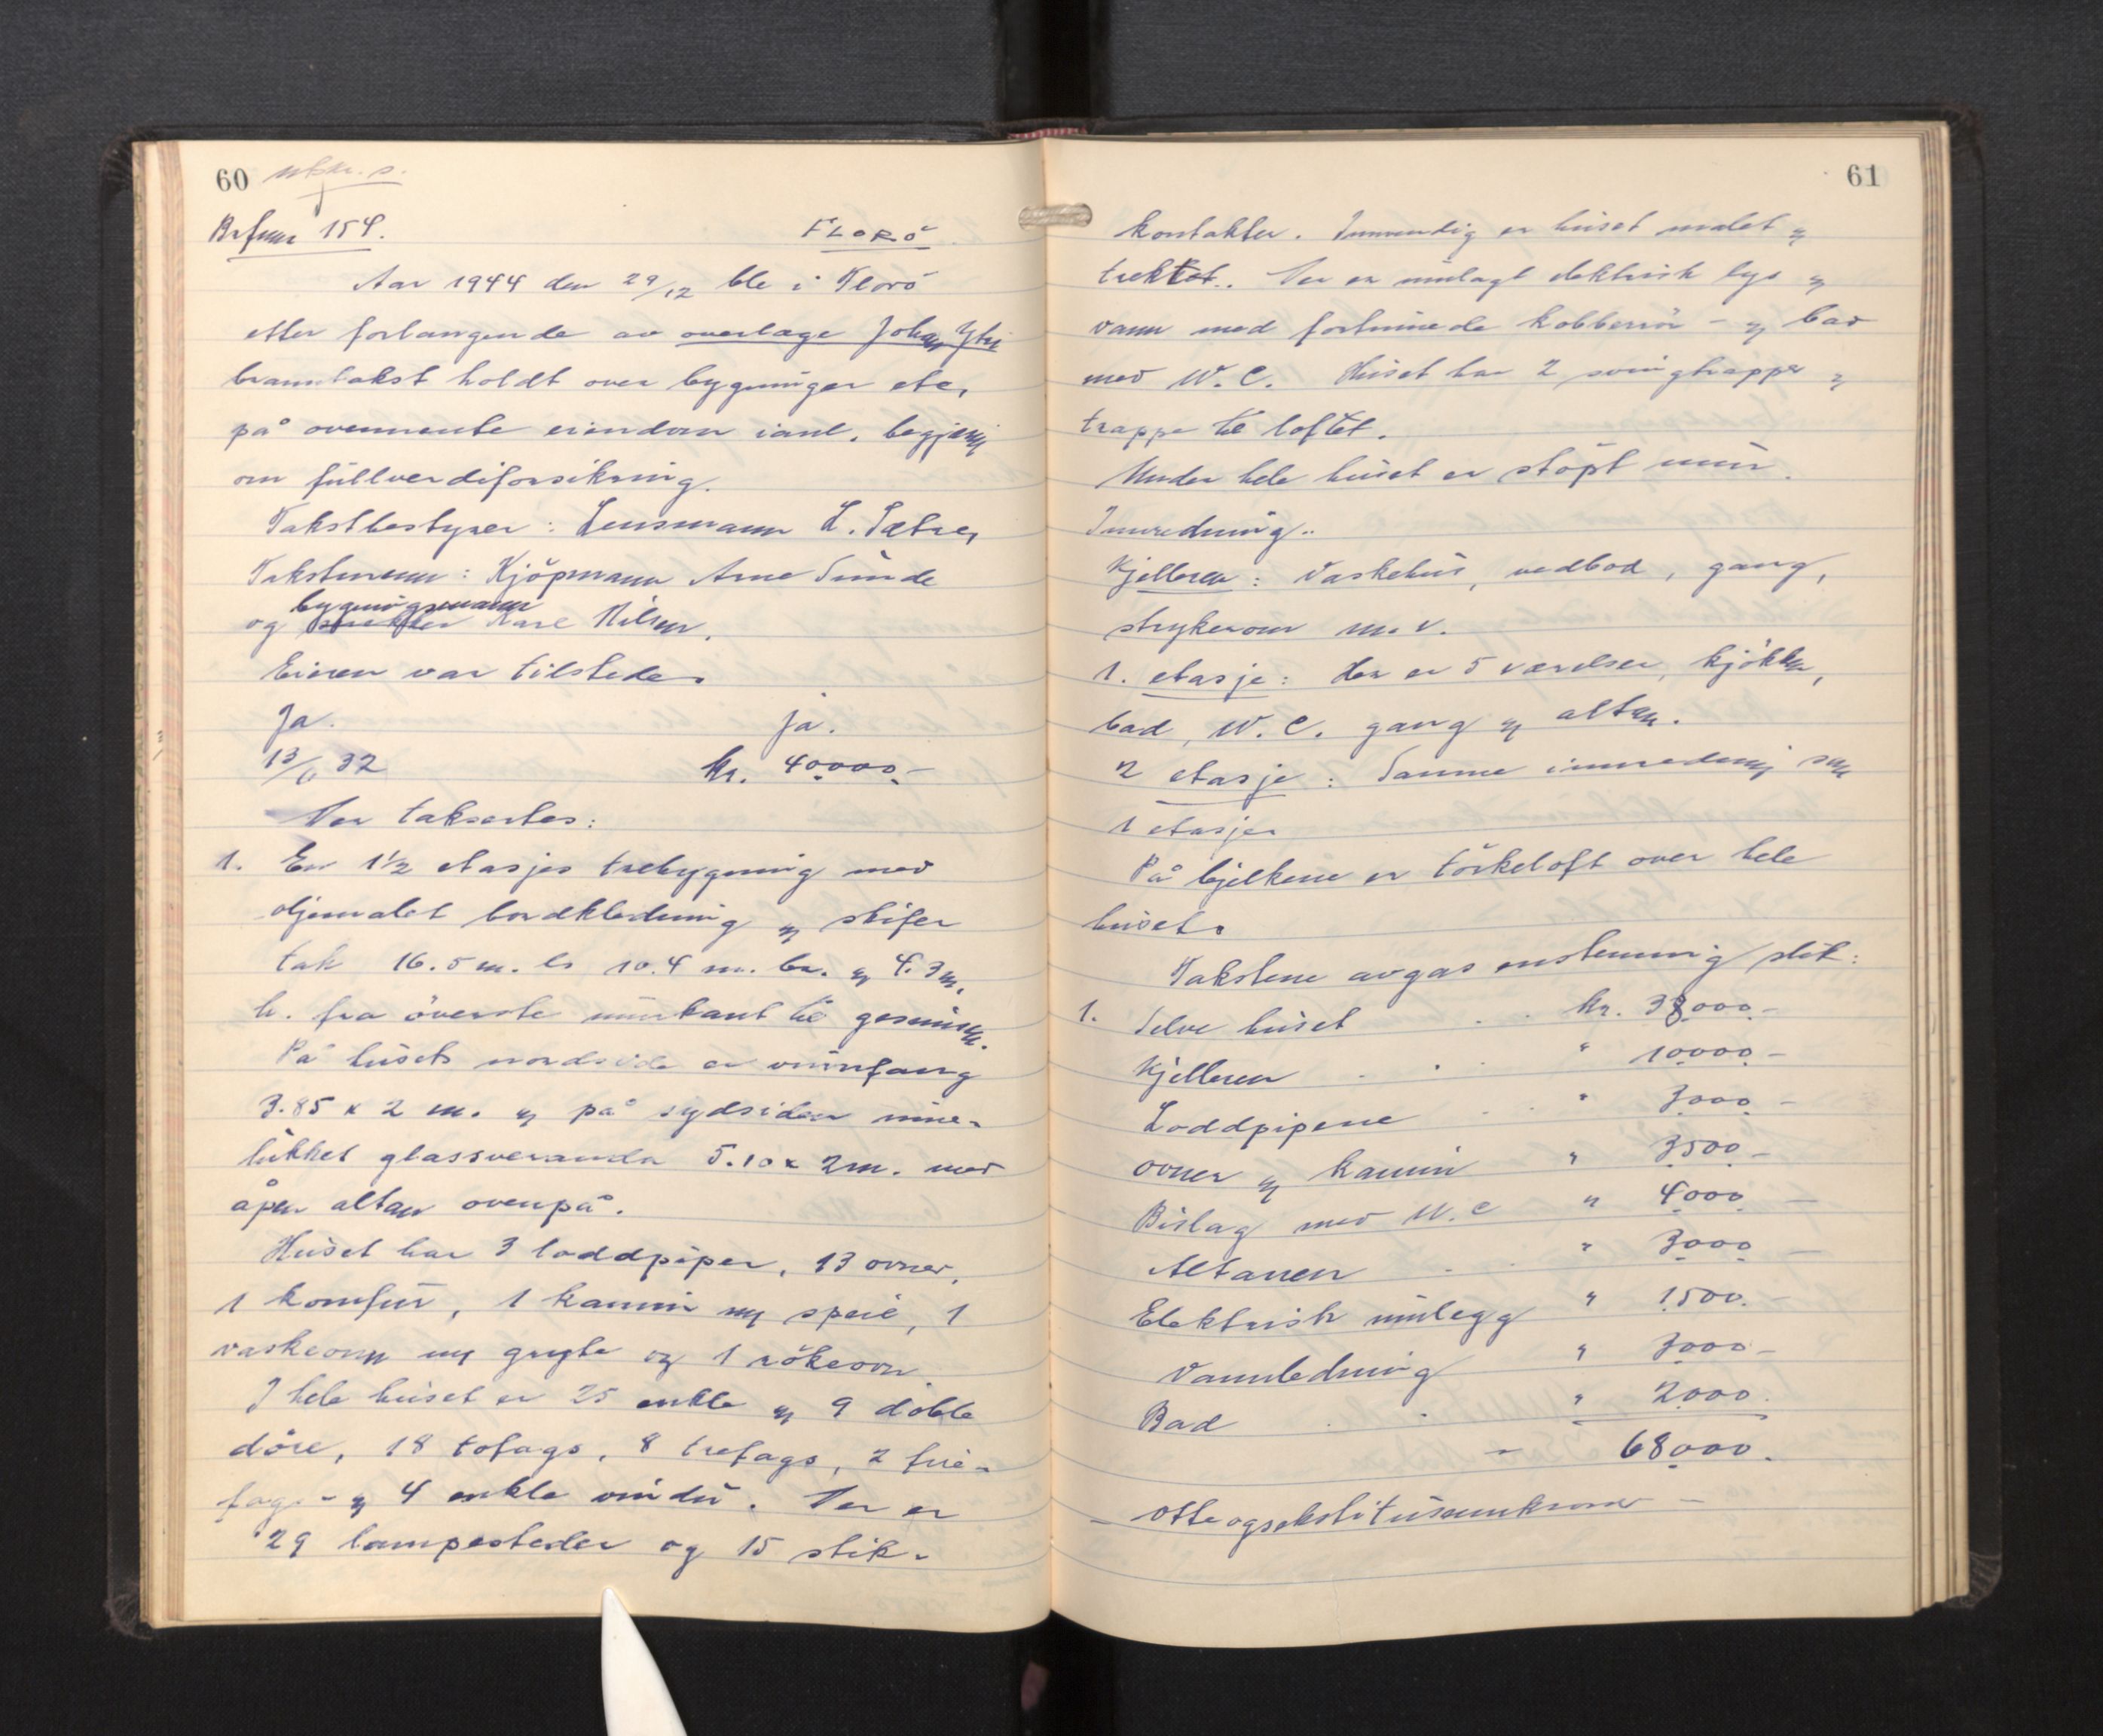 60 utskr. s.
Brfnnr 154. FLORÖ
Aar 1944 den 29/12 ble i Florö
etter forlangende av overlæge Johan Ytri
branntakst holdt over bygninger etc.
på ovennevnte eiendom ianl. begjæring
om fullverdiforsikring.
Takstbestyrer: Lensmann L. Sætre,
Takstmenn: Kjöpmann Arne Sunde
bygningsmann
og Kåre Nilsen.
Eieren var tilstede.
Ja. ja.
13/6 32 kr. 40000.-
Der takseertes:
1. En 1½ etasjes trebygning med
oljemalet bordkledning og skifer
tak 16.5 m. l. 10.4 m. br. og 4.3 m.
h. fra överste murkant til gesimsen.
På husets nordside er vinnfang
3.85 x 2 m. og på sydsiden inne-
lukket glassveranda 5.10 x 2 m. med
åpen altan ovenpå.
Huset har 3 loddpiper, 13 ovner,
1 komfur, 1 kamin m peis, 1
vaskeovn m gryte og 1 rökeovn.
I hele huset er 25 enkle og 9 doble
döre, 18 tofags, 8 trefags, 2 fire-
fags- og 4 enkle vindu. Der er
29 lampesteder og 15 stik-
61
kontakter. Innvendig er huset malet og
trektet. Der er innlagt elektrisk lys og
vann med fortinnede kobberrör - og bad
med W.C. Huset har 2 svingtrapper og
trappe til loftet.
Under hele huset er stöpt mur.
Innredning..
Kjelleren: Vaskehus, vedbod, gang,
strykerom m.v.
1. etasje: Her er 5 værelser, kjökken,
bad, W.C. gang og altan.
2 etasje: Samme innredning som
1 etasje.
På bjelkene er törkeloft over hele
huset.
Takstene avgas enstemmig slik:
1. Selve huset . . kr. 38000.-
Kjelleren . . . " 10000.-
Loddpipene . . " 3000.-
ovner og kamin " 3500.-
Bislag med W.C " 4000 -
Altanen . . " 3000 -
Elektrisk innlegg " 1500.-
Vannledning " 3000.-
Bad . . " 2000.
- 68000.
- Otteogsekstitusennkroner -